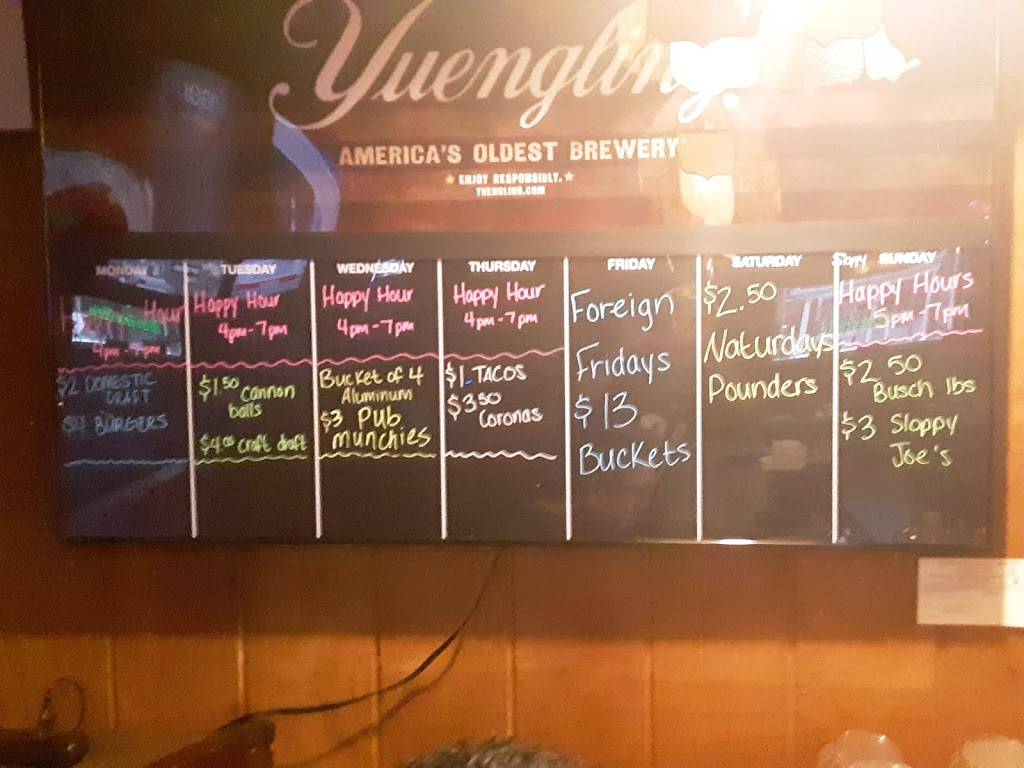 Yuengling
AMERICA'S OLDEST BREWERY
★ ENJOY RESPONSIBLY. ★
YUENGLING.COM
MONDAY
Hour
4pm - 7pm
$2 DOMESTIC
DRAFT
$4 BURGERS
TUESDAY
Happy Hour
4pm - 7pm
$1.50 Cannon
balls
$4.00 craft draft
WEDNESDAY
Happy Hour
4pm - 7pm
Bucket of 4
Aluminum
$3 Pub
munchies
THURSDAY
Happy Hour
4pm - 7pm
$1 TACOS
$3.50
Coronas
FRIDAY
Foreign
Fridays
$13
Buckets
SATURDAY
$2.50
Naturdays
Pounders
Sloppy SUNDAY
Happy Hours
5pm - 7pm
$2.50
Busch lbs
$3 Sloppy
Joe's